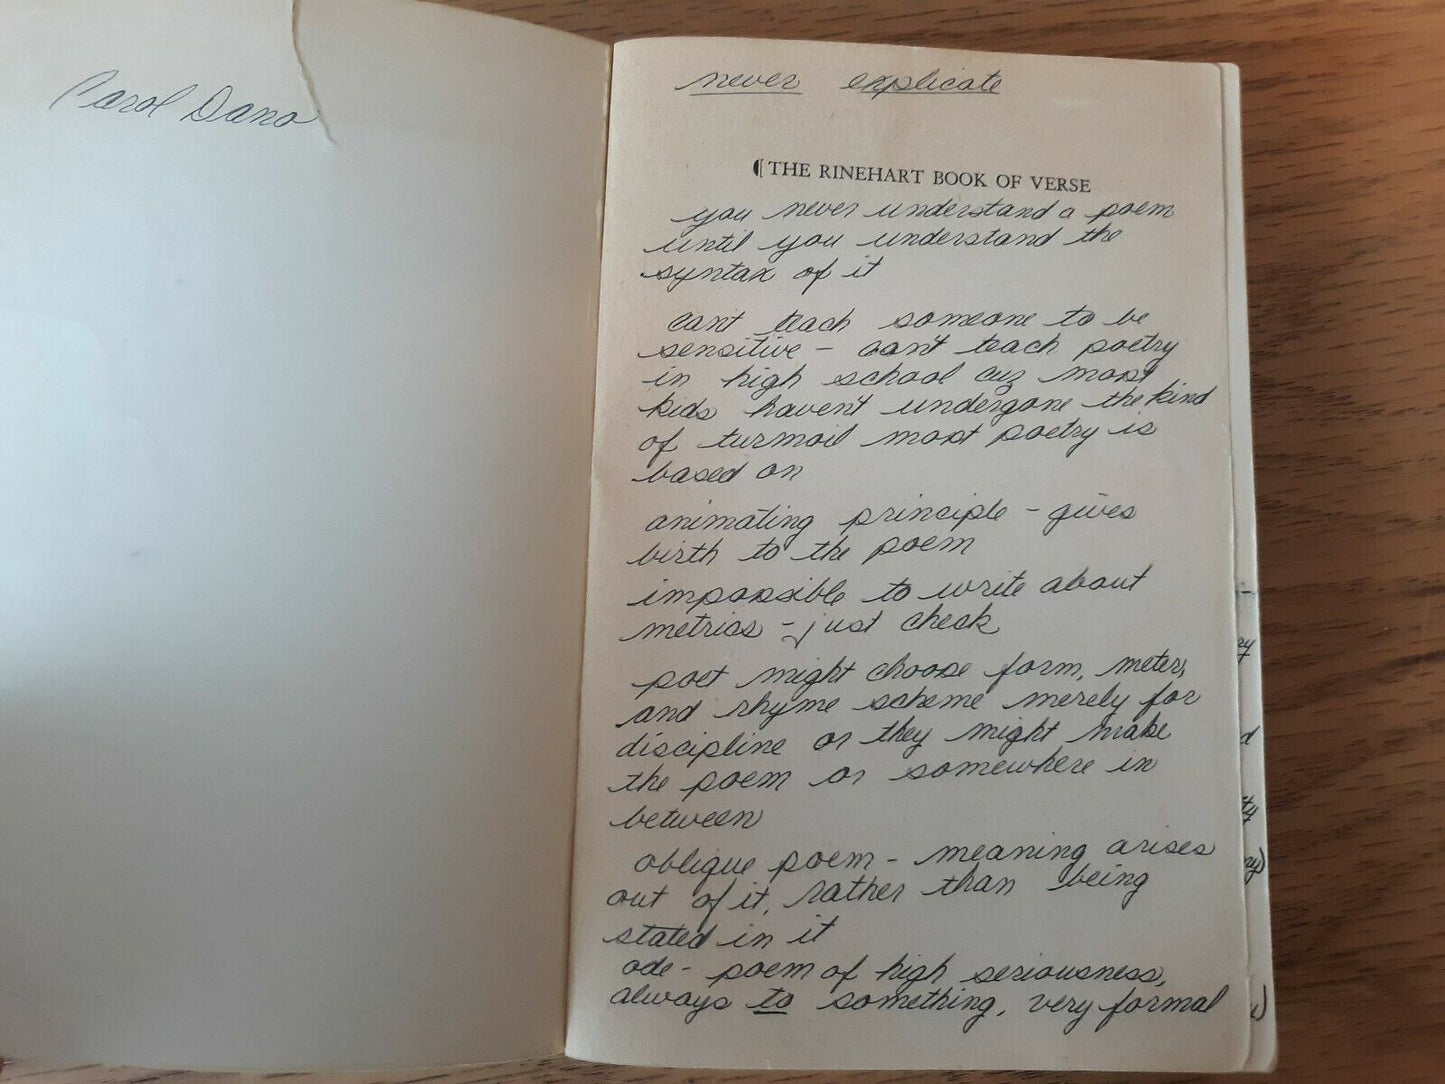 Carol Dana
never explicate
THE RINEHART BOOK OF VERSE
you never understand a poem
until you understand the
syntax of it
cant teach someone to be
sensitive - can't teach poetry
in high school cuz most
kids haven't undergone the kind
of turmoil most poetry is
based on
animating principle - gives
birth to the poem
impossible to write about
metrics - just check
poet might choose form, meter,
and rhyme scheme merely for
discipline or they might make
the poem or somewhere in
between
oblique poem - meaning arises
out of it, rather than being
stated in it
ode - poem of high seriousness,
always to something, very formal